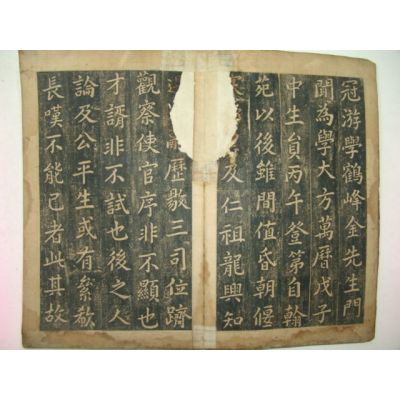 冠游學鶴峰金先生門
聞為學大方萬曆戊子
中生貟丙午登第自翰
苑以後雖間值昏朝偃
及仁祖龍興知
歷敭三司位躋
觀察使官序非不顯也
才諝非不試也後之人
論及公平生或有絫欷
長嘆不能已者此其故